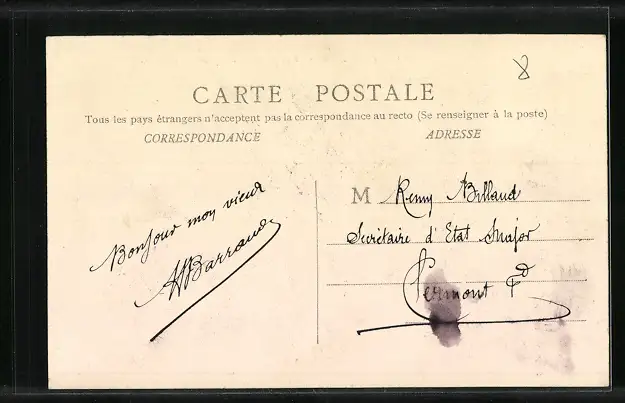 8
CARTE POSTALE
Tous les pays étrangers n'acceptent pas la correspondance au recto (Se renseigner à la poste)
CORRESPONDANCE
ADRESSE
Bonjour mon vieux
A Barraud
M Remy Billaud
Secrétaire d'Etat Major
Clermont Fd